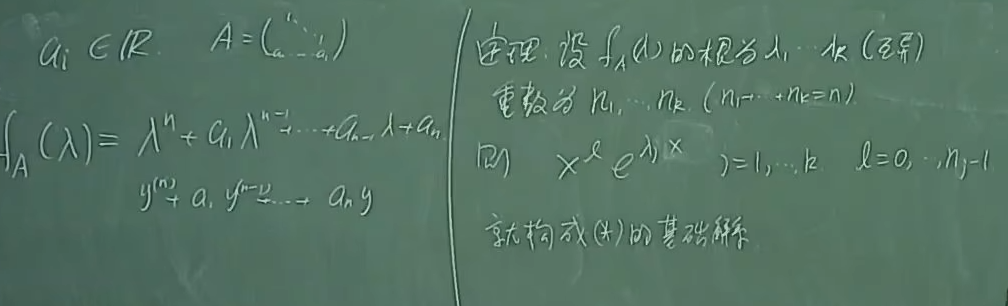 aᵢ ∈ ℝ. A = ( ¹⋱ a … a₁ )
f_A(λ) = λⁿ + a₁λⁿ⁻¹ + … + aₙ₋₁λ + aₙ
y⁽ⁿ⁾ + a₁y⁽ⁿ⁻¹⁾ + … + aₙy
定理. 设 f_A(λ) 的根为 λ₁ … λₖ (互异)
重数为 n₁, … nₖ. (n₁ + … + nₖ = n)
则 xˡ e^{λⱼx} j = 1, …, k. l = 0, …, nⱼ-1
就构成(*)的基础解系